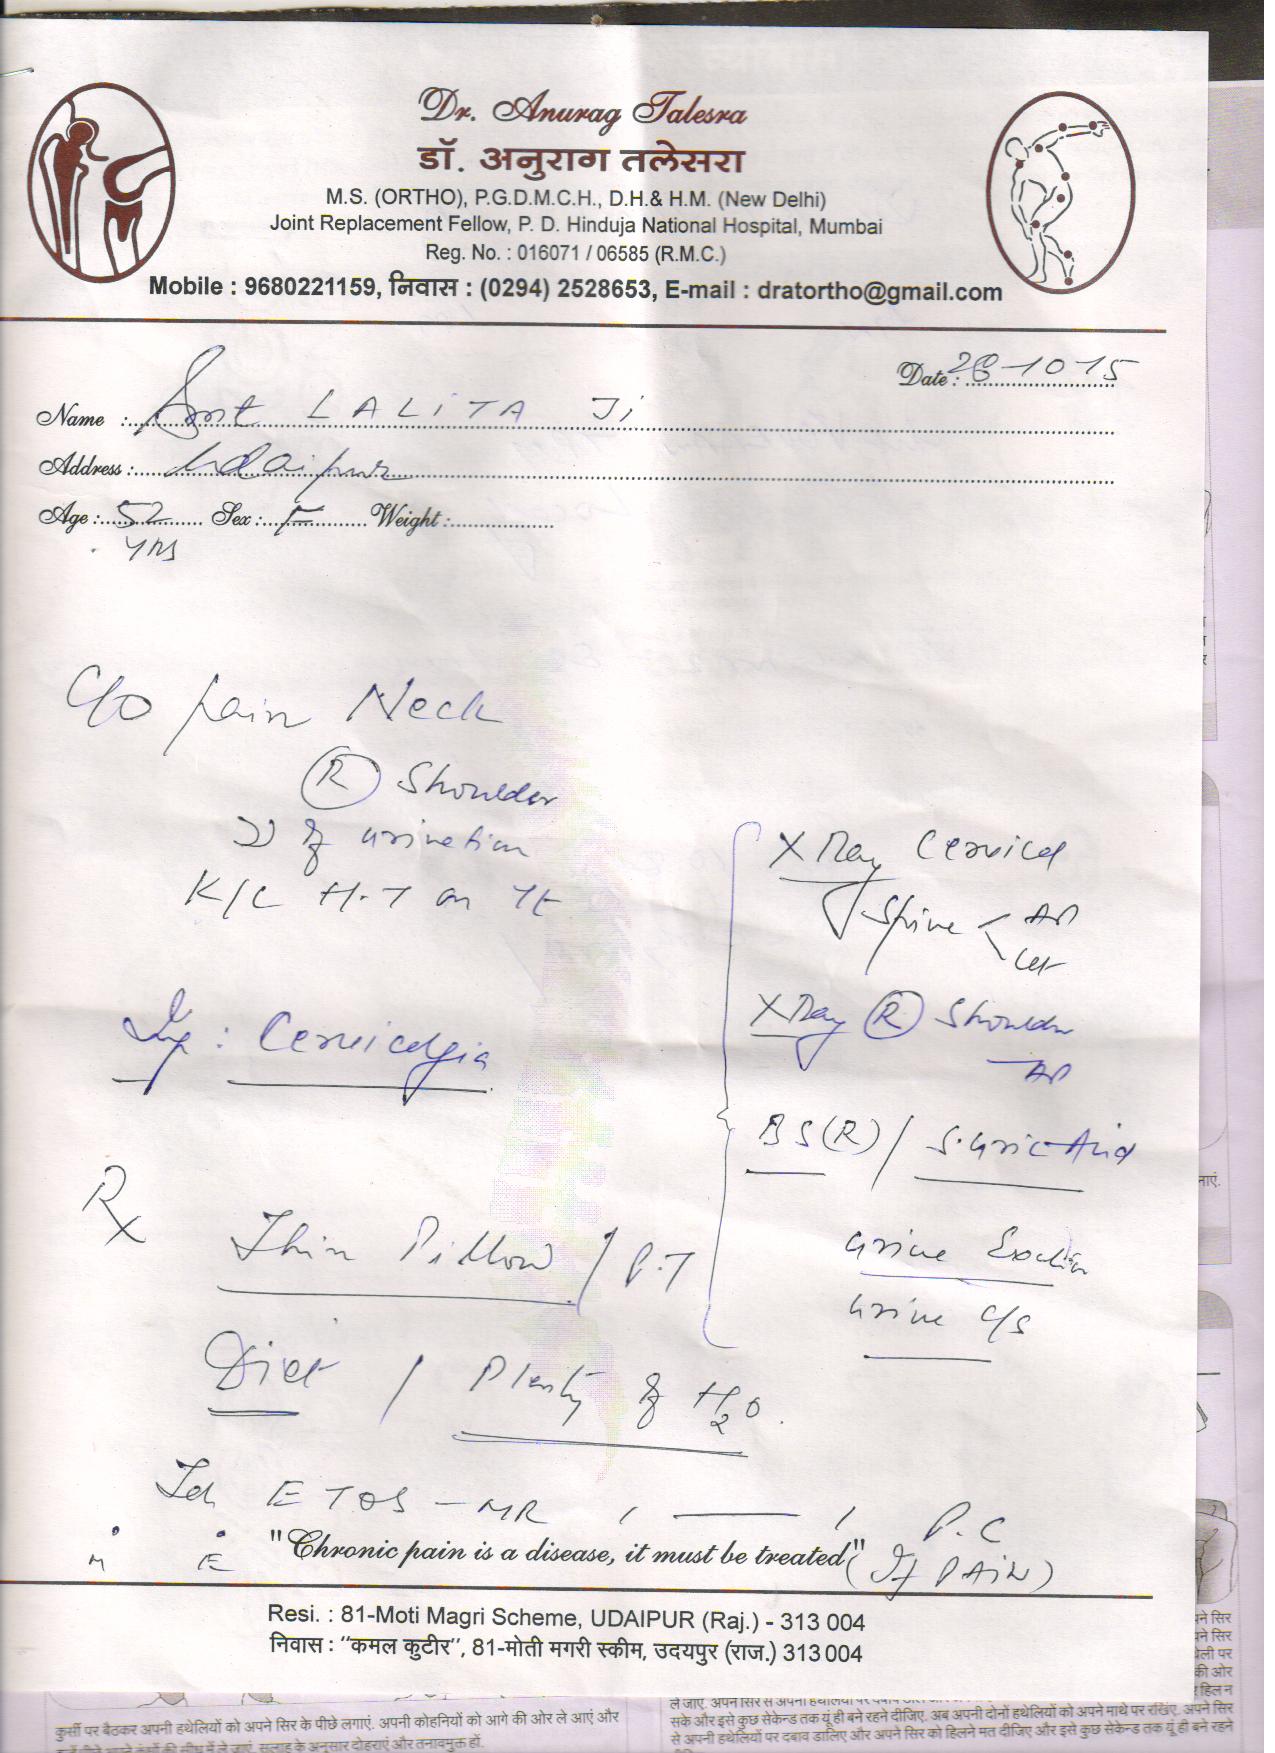 Dr. Anurag Talesra
डॉ. अनुराग तलेसरा
M.S. (ORTHO), P.G.D.M.C.H., D.H.& H.M. (New Delhi)
Joint Replacement Fellow, P. D. Hinduja National Hospital, Mumbai
Reg. No. : 016071 / 06585 (R.M.C.)
Mobile : 9680221159, निवास : (0294) 2528653, E-mail : dratortho@gmail.com
Date : 28-10-15
Name : Smt LALITA Ji
Address : Udaipur
Age : 52 Sex : F Weight :
yrs
C/o pain Neck
(R) Shoulder
of urination
K/C H.T on
X Ray Cervical
Spine < AP
Lat
X Ray (R) Shoulder
AP
Cervicalgia
BS(R) / S. Uric Acid
Rx
Thin Pillow / P.T
Urine
Urine C/s
Diet / Plenty of H2O.
ETOS - MR P.C
M E
"Chronic pain is a disease, it must be treated" (If PAIN)
Resi. : 81-Moti Magri Scheme, UDAIPUR (Raj.) - 313 004
निवास : "कमल कुटीर", 81-मोती मगरी स्कीम, उदयपुर (राज.) 313 004
कुर्सी पर बैठकर अपनी हथेलियों को अपने सिर के पीछे लगाएं. अपनी कोहनियों को आगे की ओर ले आएं और
सके और इसे कुछ सेकेन्ड तक यूं ही बने रहने दीजिए. अब अपनी दोनों हथेलियों को अपने माथे पर रखिए. अपने सिर
से अपनी हथेलियों पर दबाव डालिए और अपने सिर को हिलने मत दीजिए और इसे कुछ सेकेन्ड तक यूं ही बने रहने